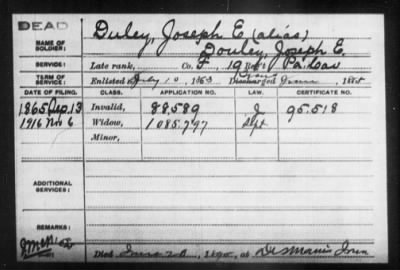 DEAD
NAME OF SOLDIER: Duley, Joseph E. (alias)
Douley, Joseph E.
SERVICE: Late rank, Co. F, 19 Reg't Pa. Cav
TERM OF SERVICE: Enlisted July 10, 1863 Discharged June 186
DATE OF FILING. CLASS. APPLICATION NO. LAW. CERTIFICATE NO.
1865 Dec. 13 Invalid, 88,589 95,518
1916 Nov 6 Widow, 1085,797 Sept
Minor,
ADDITIONAL SERVICES:
REMARKS:
Died June at Des Moines Iowa